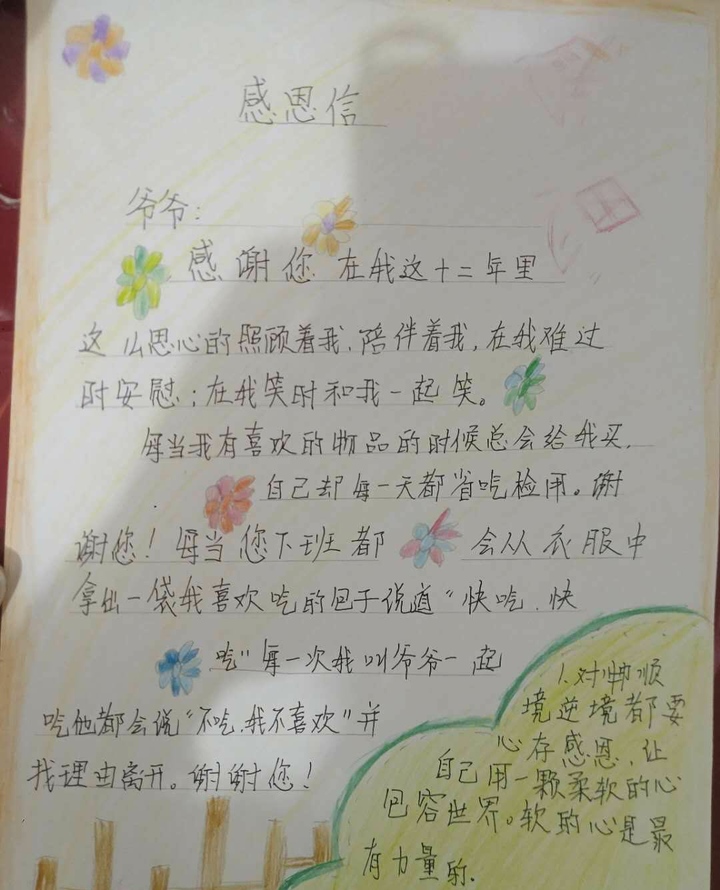 感恩信
爷爷:
感谢您在我这十二年里
这么恩心的照顾着我,陪伴着我,在我难过
时安慰;在我笑时和我一起笑。
每当我有喜欢的物品的时候总会给我买,
自己却每一天都省吃检用。谢
谢您!每当您下班都会从衣服中
拿出一袋我喜欢吃的包子说道“快吃,快
吃”每一次我叫爷爷一起
吃他都会说“不吃,我不喜欢”并
找理由离开。谢谢您!
1.对顺
境逆境都要
心存感恩,让
自己用一颗柔软的心
包容世界。软的心是最
有力量的.